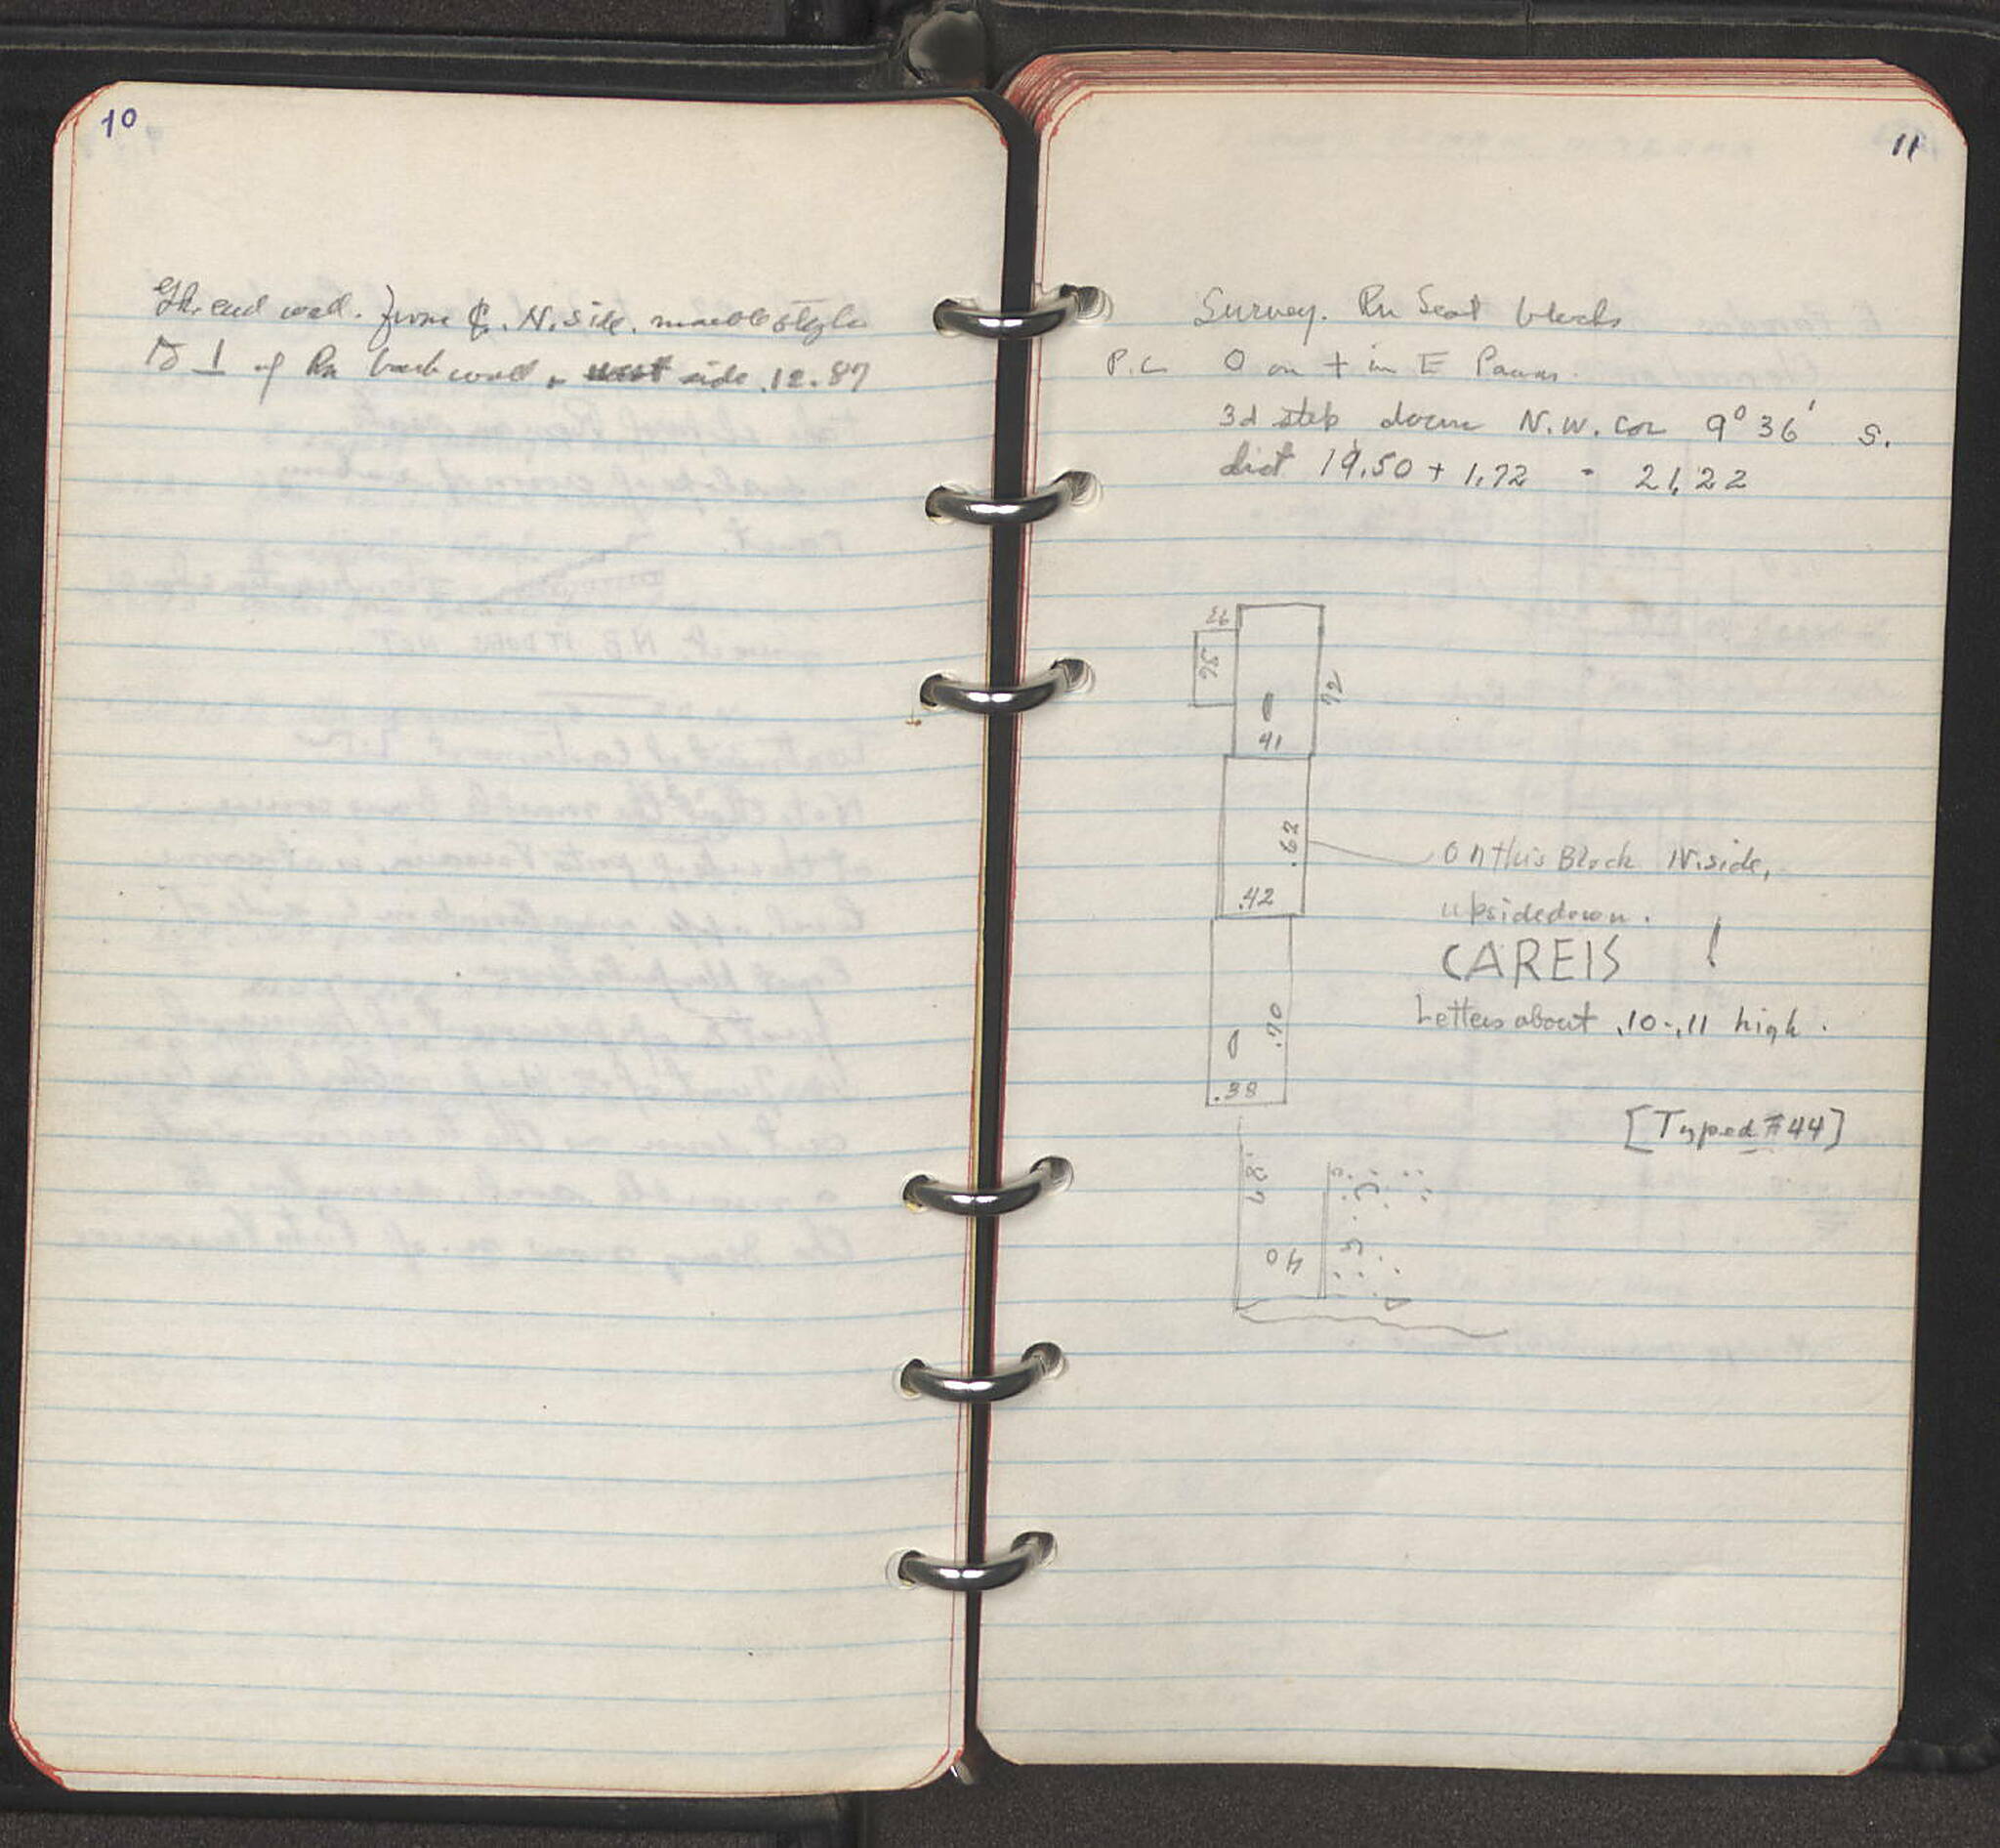 10
Gk. end wall. from ℄. N. side. marble style
to ⊥ of Rn back wall, side .12.87
11
Survey. Rn Seat blocks
P.C. 0 on + in E
3d step down N.W. cor 9° 36' S.
dist 19.50 + 1.72 = 21,22
36
72
41
.62
.42
on this Block N. side,
upsidedown.
CAREIS !
Letters about .10-.11 high.
.70
.38
[Typed #44]
.87
40